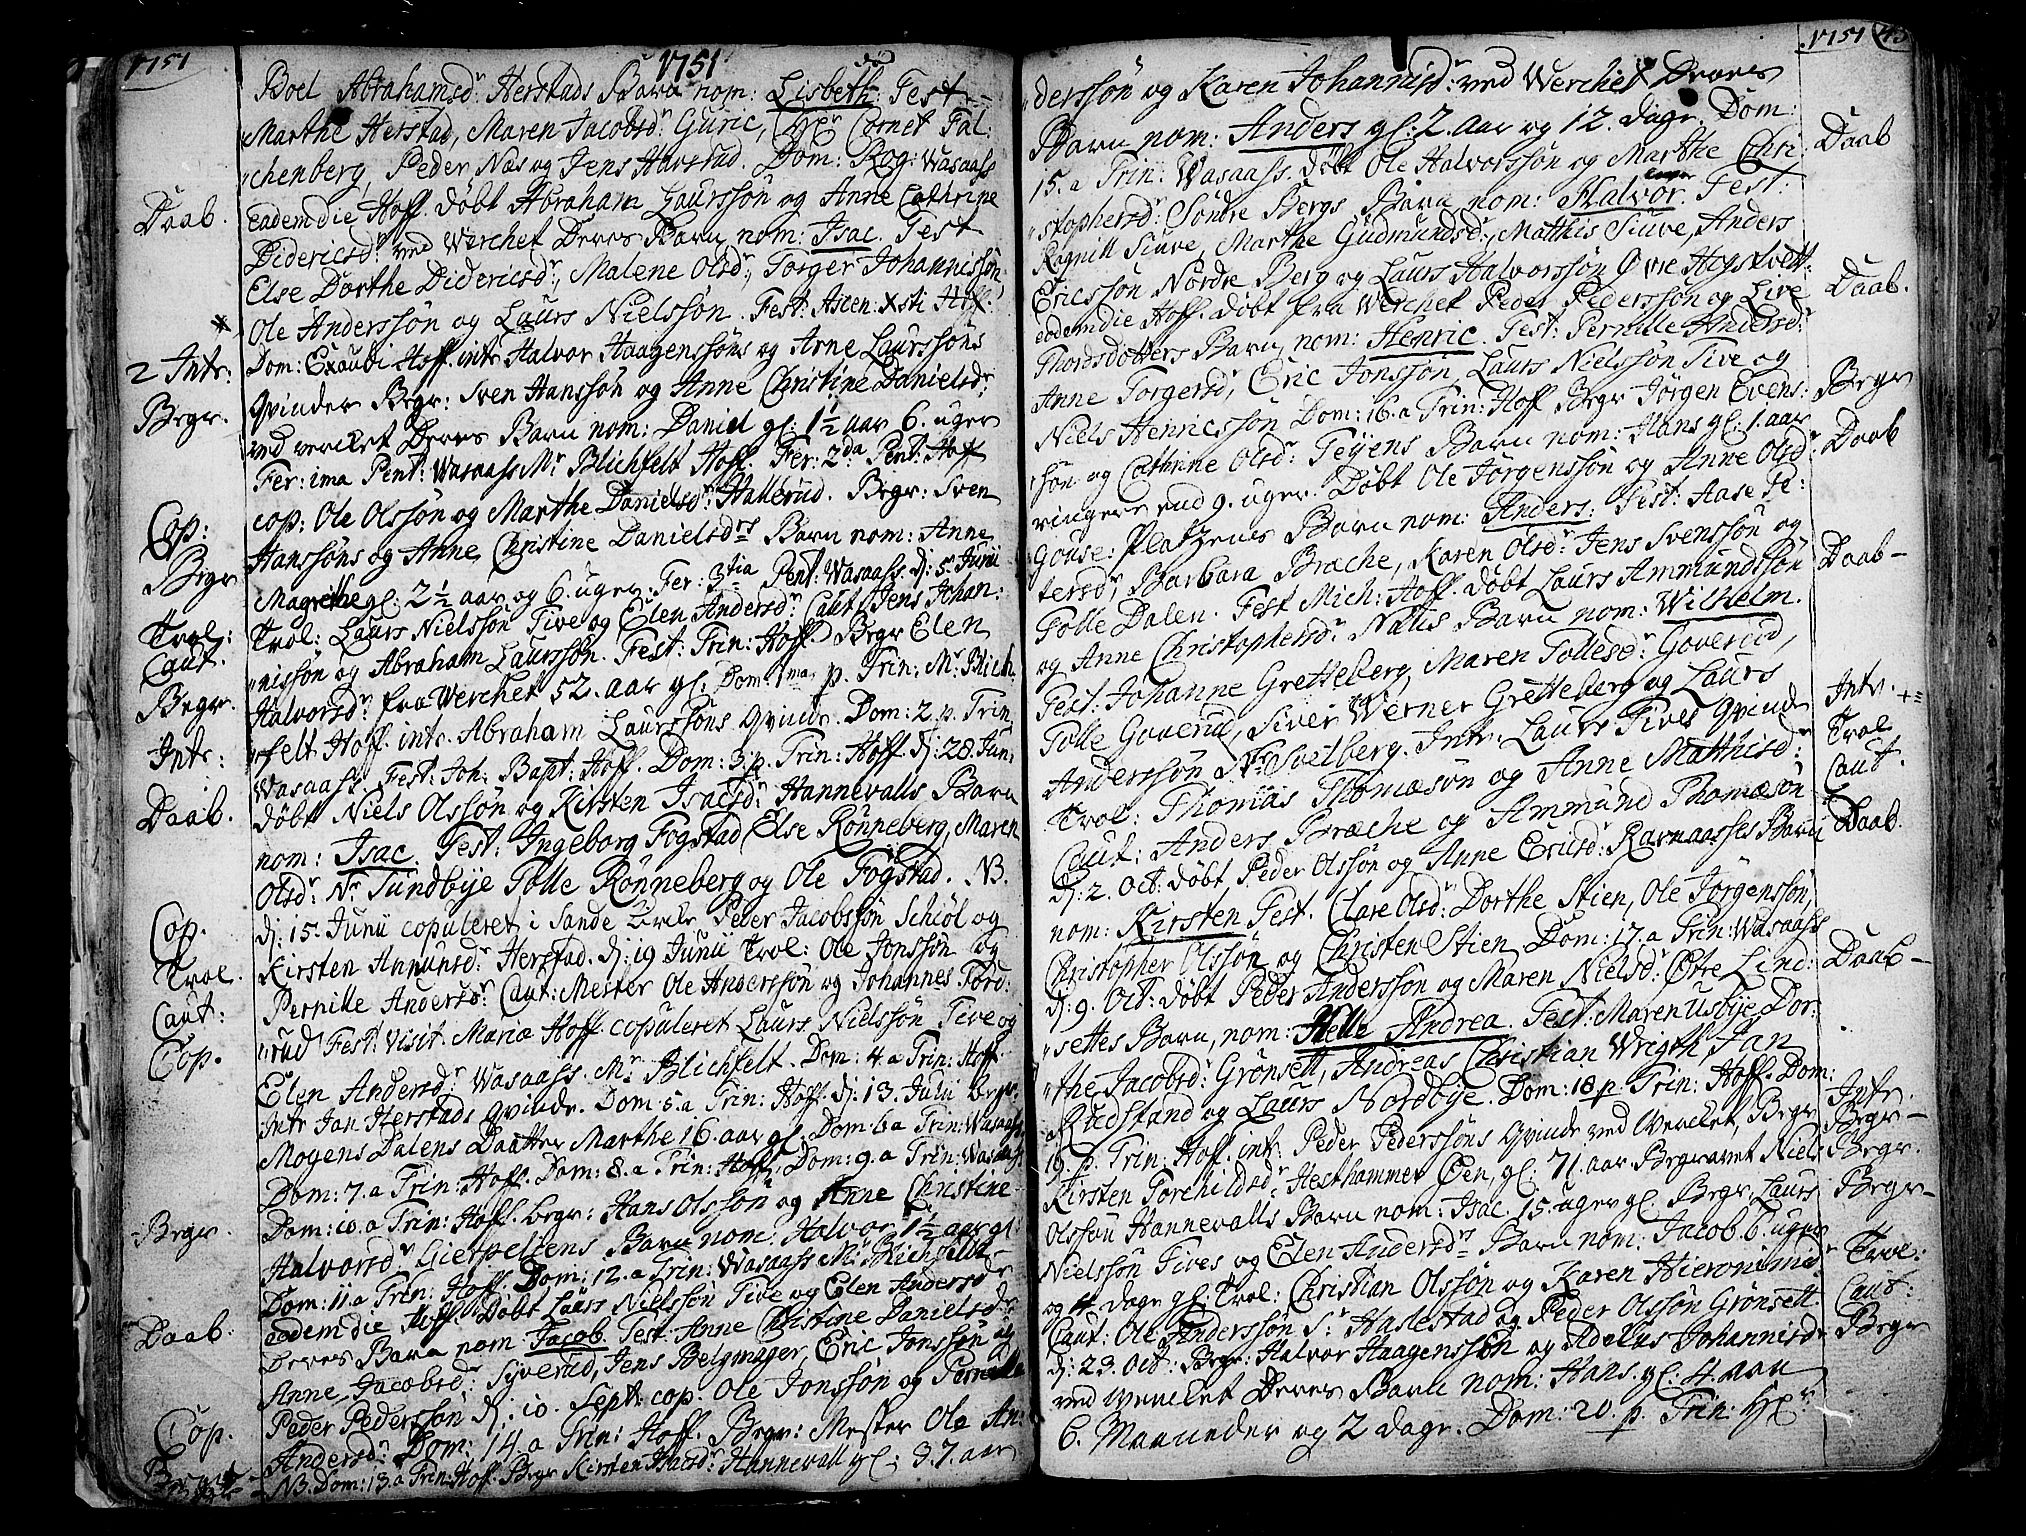 1751
1751
Boel Abrahamsdr Herstads Barn nom: Lisbeth Test
Marthe Herstad, Maren Jacobsdr Guric, Cornet Fal:
chenberg, Peder Næs og Jens Harstad. Dom: Rog: Wasaass
Daab. eadem die Hoff. døbt Abraham Laurssøn og Anne Cathrine
Didericsdr ved Werchet Deres Barn nom: Isac. Test
Else Dorthe Didericsdr, Malene Olsdr, Torger Johannissøn
Ole Anderssøn og Laurs Nielssøn. Fest: Ascen: Xsti Hoff.
2 Intr: Dom: Exaudi Hoff. intr Halvor Haagenssøns og Arne Laurssøns
Begr. Qvinder Begr: Sven Hanssøn og Anne Christine Danielsdr
ved verchet Deres Barn nom: Daniel gl: 1½ aar 6. uger
Fer: 1ma Pent: Wasaass Mr Blichfelt Hoff. Fer: 2da Pent: Hoff
Cop: cop: Ole Olssøn og Marthe Danielsdr Hallerud. Begr: Sven
Begr Hanssøns og Anne Christine Danielsdrs Barn nom: Anne
Magrethe gl: 2½ aar og 6. uger. Fer: 3tia Pent: Wasaass. d: 5. Junii
Trol: Trol: Laurs Nielssøn Tive og Elen Andersdr Caut Jens Johan:
Caut. nissøn og Abraham Laurssøn. Fest: Trin: Hoff Begr Elen
Begr. Halvorsdr fra Werchet 52. aar gl. Dom: 1ma p. Trin: Mr Blich
Intr: felt Hoff. intr. Abraham Laurssøns Qvinde. Dom: 2. p. Trin
Wasaass. Fest: Joh: Bapt: Hoff. Dom: 3. p. Trin: Hoff. d: 28. Jun:
Daab. døbt Niels Olssøn og Kirsten Isacsdr Hannevalls Barn
nom: Isac. Test: Ingeborg Fogstad Else Rønneberg, Maren
Olsdr Nr Sundbye Tolle Rønneberg og Ole Fogstad. NB.
Cop. d: 15. Junii copuleret i Sande Kirke Peder Jacobssøn Schiøl og
Trol. Kirsten Amundsdr Herstad. d: 19 Junii Trol: Ole Jonssøn og
Caut: Pernille Andersdr Caut: Mester Ole Anderssøn og Johannes Tord:
Cop. rud Fest: Visit. Mariæ Hoff copuleret Laurs Nielssøn Tive og
Elen Andersdr Wasaass. Mr Blichfelt. Dom: 4. a Trin: Hoff
Intr Jan Herstads Qvinde. Dom: 5. a Trin: Hoff. d: 13. Julii begr.
Mogens Dalens Daatter Marthe 16. aar gl. Dom: 6. a Trin: Wasaass
Dom: 7. a Trin: Hoff. Dom: 8. a Trin: Hoff. Dom: 9. a Trin: Wasaass
Begr. Dom: 10. a Trin: Hoff. begr: Hans Olssøn og Anne Christine
Halvorsdr Lierpellens Barn nom: Halvor 1½ aar gl
Dom: 11. a Trin: Hoff. Dom: 12. a Trin: Wasaass Mr Blichfelt
Daab: eodem die Hoff. Døbt Laurs Nielssøn Tive og Elen Andersdr
Deres Barn nom Jacob. Test: Anne Christine Danielsdr
Anne Jacobsdr Syverud, Jens Belgmager, Eric Jonssøn og
Peder Pederssøn d: 10. Sept: cop. Ole Jonssøn og Pernille
Cop. Andersdr Dom: 14. a Trin: Hoff. Begr: Mester Ole An:
NB. Dom: 13. a Trin: Hoff. Begr Kirsten Isacsdr Hannevall gl: 37. aar
1751 43
derssøn og Karen Johannisdr ved Werchet Deres
Barn nom: Anders gl: 2. aar og 12. dage. Dom:
Daab 15. a Trin: Wasaass. døbt Ole Halvorssøn og Marthe Chri
stophersdr Søndre Bergs Barn nom: Halvor. Test:
Ragnill Siuve, Marthe Gudmundsdr, Matthis Siuve, Anders
Ericssøn Nordre Berg og Laurs Halvorssøn Øvre Hogstvett
Daab. eodem die Hoff. døbt fra Werchet Peder Pederssøn og Live
Thordsdotters Barn nom: Henric. Test: Pernille Andersdr
Anne Torgersdr, Eric Jonssøn, Laurs Nielssøn Tive og
Begr Niels Henricssøn Dom: 16. a Trin: Hoff Begr Jørgen Evens:
søn og Cathrine Olsdr Teyens Barn nom: Hans gl: 1. aar
Daab ringere end 9. uger. Døbt Ole Jørgenssøn og Anne Olsdr
Gouse: Platzenes Barn nom: Anders. Test: Aase Pe:
tersdr, Barbara Bræche, Karen Olsdr Jens Svenssøn og
Daab Tolle Dalen. Fest Mich: Hoff. døbt Laurs Ammundssøn
og Anne Christophersdr Næsis Barn nom: Wilhelm.
Test: Johanne Gretteberg, Maren Tollesdr Goverud,
Tolle Goverud, Siver Werner Gretteberg og Laurs
Intr. Anderssøn Nr Svelberg. Intr: Laurs Tives Qvinde
Trol Trol: Thomas Thomæsøn og Anne Matthisdr
Caut. Caut: Anders Bræche og Ammund Thomæsøn
Daab. d: 2. Oct: døbt Peder Olssøn og Anne Ericsdr Ravnaasses Barn
nom: Kirsten Test. Clare Olsdr Dorthe Stien, Ole Jørgenssøn,
Christopher Olssøn og Christen Stien Dom: 17. a Trin: Wasaass
Daab d: 9. Oct: døbt Peder Anderssøn og Maren Nielsdr Østre Lind:
settes Barn, nom: Helle Andrea. Test: Maren Usbye, Dor:
the Jacobsdr Grønsett, Andreas Christian Wrigth, Jan
Rudstand og Laurs Nordbye. Dom: 18 p. Trin: Hoff. Dom:
Intr. 19. p. Trin: Hoff. intr. Peder Pederssøns Qvinde ved Werchet, Begr
Begr Kirsten Torchildsdr Hesthammer Øen, gl: 71. aar. Begravet Niels
Begr. Olssøn Hannevalls Barn nom: Isac. 15. uger gl. Begr. Laurs
Begr Nielssøn Tives og Elen Andersdrs Barn nom: Jacob 6. uger
Trol: og 4. dage gl: Trol: Christian Olssøn og Karen Hieronimidr
Caut: Caut. Ole Anderssøn Sr Haslestad og Peder Olssøn Grønsett
Begr d: 23. Oct: Begr: Halvor Haagenssøn og Adelus Johannisdr
ved verchet Deres Barn nom: Hans. gl: 4. aar
6. Maaneder og 2 dage. Dom: 20. p. Trin: